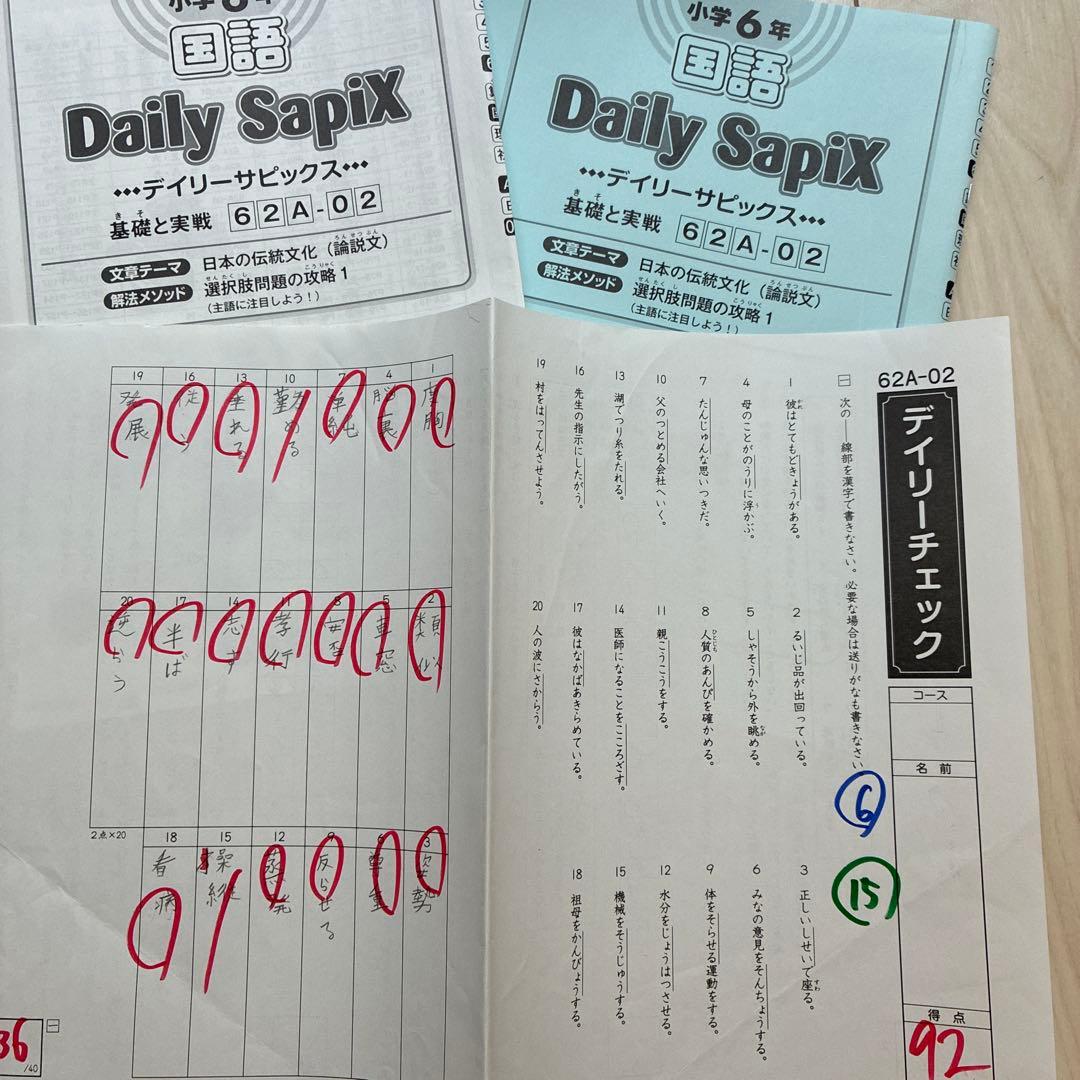 小学6年
国語
Daily SapiX
デイリーサピックス
基礎と実戦 62A-02
文章テーマ 日本の伝統文化（論説文）
解法メソッド 選択肢問題の攻略1
（主語に注目しよう！）
小学6年
国語
Daily SapiX
デイリーサピックス
基礎と実戦 62A-02
文章テーマ 日本の伝統文化（論説文）
解法メソッド 選択肢問題の攻略1
（主語に注目しよう！）
62A-02
デイリーチェック
コース
名前
得点
92
一 次の――線部を漢字で書きなさい。必要な場合は送りがなも書きなさい。
6
15
1 彼はとてもどきょうがある。
2 るいじ品が出回っている。
3 正しいしせいで座る。
4 母のことがのうりに浮かぶ。
5 しゃそうから外を眺める。
6 みなの意見をそんちょうする。
7 たんじゅんな思いつきだ。
8 人質のあんぴを確かめる。
9 体をそらせる運動をする。
10 父のつとめる会社へいく。
11 親こうこうをする。
12 水分をじょうはつさせる。
13 湖でつり糸をたれる。
14 医師になることをこころざす。
15 機械をそうじゅうする。
16 先生の指示にしたがう。
17 彼はなかばあきらめている。
18 祖母をかんびょうする。
19 村をはってんさせよう。
20 人の波にさからう。
1 度胸
2 類似
3 姿勢
4 脳裏
5 車窓
6 尊重
7 単純
8 安否
9 反らせる
10 勤める
11 孝行
12 蒸発
13 垂れる
14 志す
15 操縦
16 従う
17 半ば
18 看病
19 発展
20 逆らう
2点×20
一
36
/40